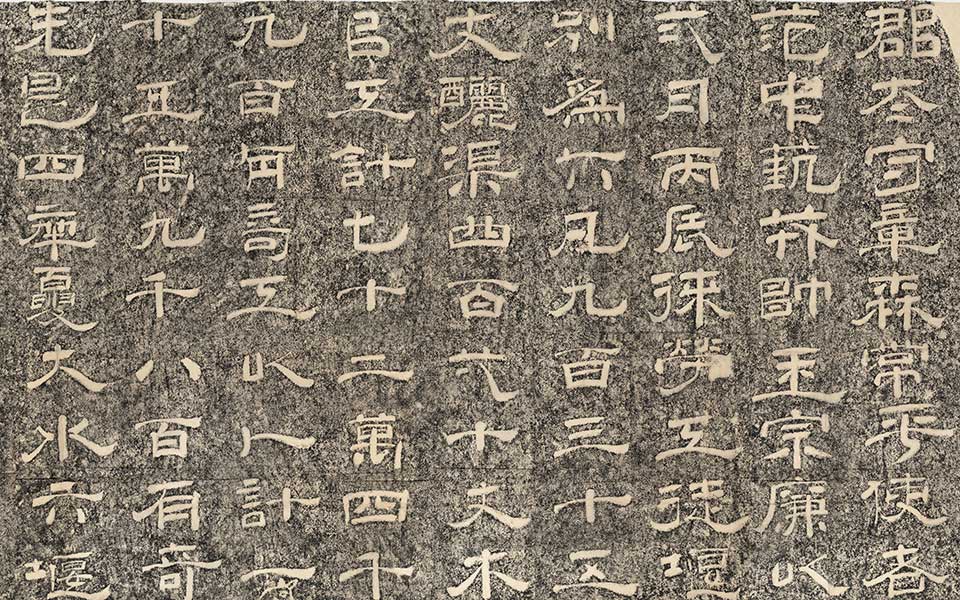 郡太守章森常平使者
范中蓺戎帥王宗廉以
弍月丙辰徠勞工徒堰
別為六凡九百三十五
丈釃渠四百弌十丈木
㠯工計七十二萬四千
九百工以人計一
十五萬九千八百有奇
先是四年夏大水六堰